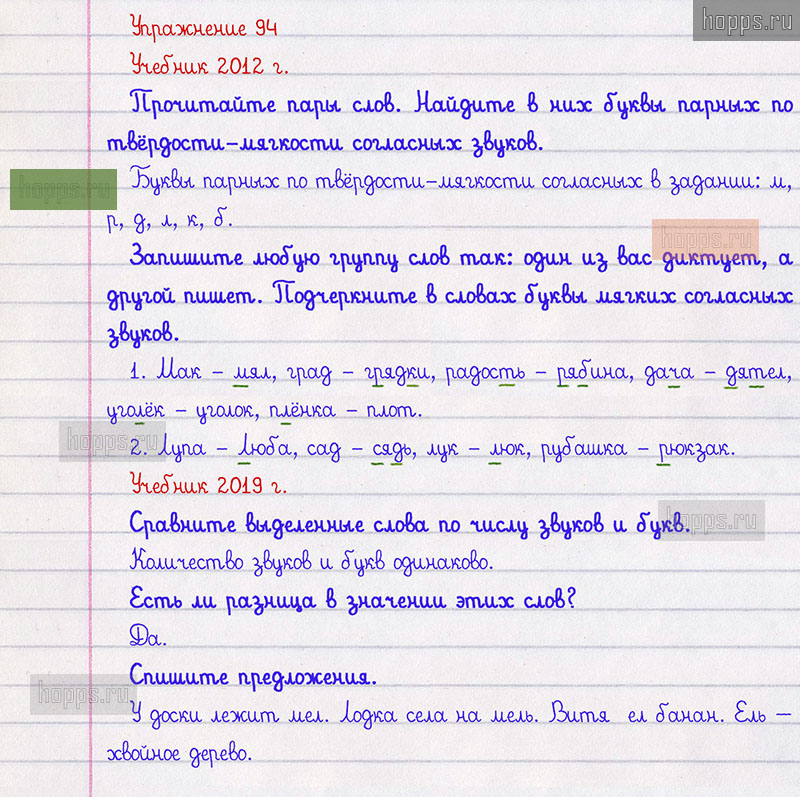 hopps.ru
Упражнение 94
Учебник 2012 г.
Прочитайте пары слов. Найдите в них буквы парных по
твёрдости-мягкости согласных звуков.
hopps.ru
Буквы парных по твёрдости-мягкости согласных в задании: м,
р, д, л, к, б.
hopps.ru
Запишите любую группу слов так: один из вас диктует, а
другой пишет. Подчеркните в словах буквы мягких согласных
звуков.
1. Мак – мял, град – грядки, радость – рябина, дача – дятел,
уголёк – уголок, плёнка – плот.
hopps.ru
2. Лупа – Люба, сад – сядь, лук – люк, рубашка – рюкзак.
Учебник 2019 г.
Сравните выделенные слова по числу звуков и букв.
hopps.ru
Количество звуков и букв одинаково.
Есть ли разница в значении этих слов?
Да.
Спишите предложения.
hopps.ru
У доски лежит мел. Лодка села на мель. Витя ел банан. Ель –
хвойное дерево.